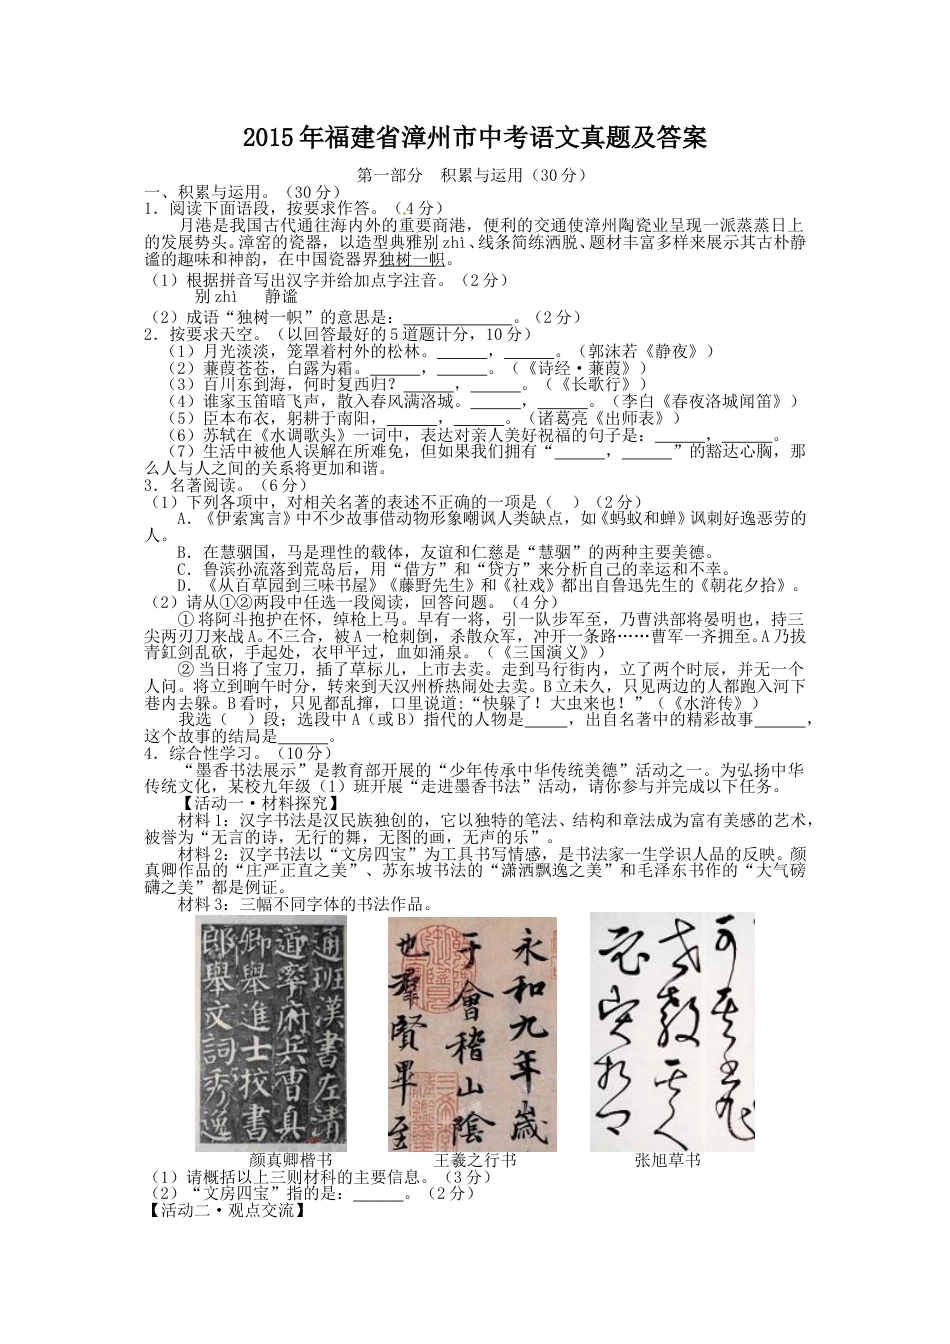 2015年福建省漳州市中考语文真题及答案
第一部分 积累与运用（30分）
一、积累与运用。（30分）
1．阅读下面语段，按要求作答。（4分）
月港是我国古代通往海内外的重要商港，便利的交通使漳州陶瓷业呈现一派蒸蒸日上
的发展势头。漳窑的瓷器，以造型典雅别zhì、线条简练洒脱、题材丰富多样来展示其古朴静
谧的趣味和神韵，在中国瓷器界独树一帜。
（1）根据拼音写出汉字并给加点字注音。（2分）
别zhì 静谧
（2）成语“独树一帜”的意思是：____________。（2分）
2．按要求天空。（以回答最好的5道题计分，10分）
（1）月光淡淡，笼罩着村外的松林。______，______。（郭沫若《静夜》）
（2）蒹葭苍苍，白露为霜。______，______。（《诗经·蒹葭》）
（3）百川东到海，何时复西归？______，______。（《长歌行》）
（4）谁家玉笛暗飞声，散入春风满洛城。______，______。（李白《春夜洛城闻笛》）
（5）臣本布衣，躬耕于南阳，______，______。（诸葛亮《出师表》）
（6）苏轼在《水调歌头》一词中，表达对亲人美好祝福的句子是：______，______。
（7）生活中被他人误解在所难免，但如果我们拥有“______，______”的豁达心胸，那
么人与人之间的关系将更加和谐。
3．名著阅读。（6分）
（1）下列各项中，对相关名著的表述不正确的一项是（ ）（2分）
A．《伊索寓言》中不少故事借动物形象嘲讽人类缺点，如《蚂蚁和蝉》讽刺好逸恶劳的
人。
B．在慧骃国，马是理性的载体，友谊和仁慈是“慧骃”的两种主要美德。
C．鲁滨孙流落到荒岛后，用“借方”和“贷方”来分析自己的幸运和不幸。
D．《从百草园到三味书屋》《藤野先生》和《社戏》都出自鲁迅先生的《朝花夕拾》。
（2）请从①②两段中任选一段阅读，回答问题。（4分）
①将阿斗抱护在怀，绰枪上马。早有一将，引一队步军至，乃曹洪部将晏明也，持三
尖两刃刀来战A。不三合，被A一枪刺倒，杀散众军，冲开一条路……曹军一齐拥至。A乃拔
青釭剑乱砍，手起处，衣甲平过，血如涌泉。（《三国演义》）
②当日将了宝刀，插了草标儿，上市去卖。走到马行街内，立了两个时辰，并无一个
人问。将立到晌午时分，转来到天汉州桥热闹处去卖。B立未久，只见两边的人都跑入河下
巷内去躲。B看时，只见都乱撺，口里说道：“快躲了！大虫来也！”（《水浒传》）
我选（ ）段；选段中A（或B）指代的人物是_____，出自名著中的精彩故事______，
这个故事的结局是______。
4．综合性学习。（10分）
“墨香书法展示”是教育部开展的“少年传承中华传统美德”活动之一。为弘扬中华
传统文化，某校九年级（1）班开展“走进墨香书法”活动，请你参与并完成以下任务。
【活动一·材料探究】
材料1：汉字书法是汉民族独创的，它以独特的笔法、结构和章法成为富有美感的艺术，
被誉为“无言的诗，无行的舞，无图的画，无声的乐”。
材料2：汉字书法以“文房四宝”为工具书写情感，是书法家一生学识人品的反映。颜
真卿作品的“庄严正直之美”、苏东坡书法的“潇洒飘逸之美”和毛泽东书作的“大气磅
礴之美”都是例证。
材料3：三幅不同字体的书法作品。
通班漢書左清
道寧府兵曹真
卿舉進士校書
郎舉文詞秀逸
永和九年歲
于會稽山陰
也羣賢畢至
颜真卿楷书 王羲之行书 张旭草书
（1）请概括以上三则材科的主要信息。（3分）
（2）“文房四宝”指的是：______。（2分）
【活动二·观点交流】